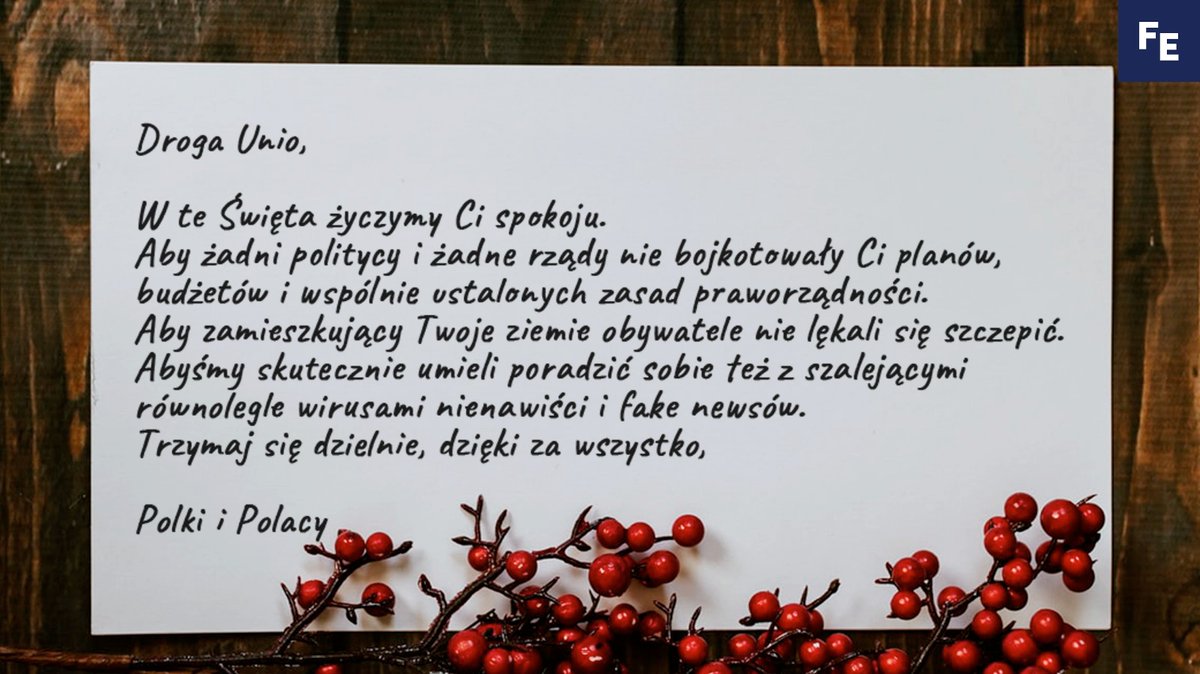 FE
Droga Unio,
W te Święta życzymy Ci spokoju.
Aby żadni politycy i żadne rządy nie bojkotowały Ci planów,
budżetów i wspólnie ustalonych zasad praworządności.
Aby zamieszkujący Twoje ziemie obywatele nie lękali się szczepić.
Abyśmy skutecznie umieli poradzić sobie też z szalejącymi
równolegle wirusami nienawiści i fake newsów.
Trzymaj się dzielnie, dzięki za wszystko,
Polki i Polacy